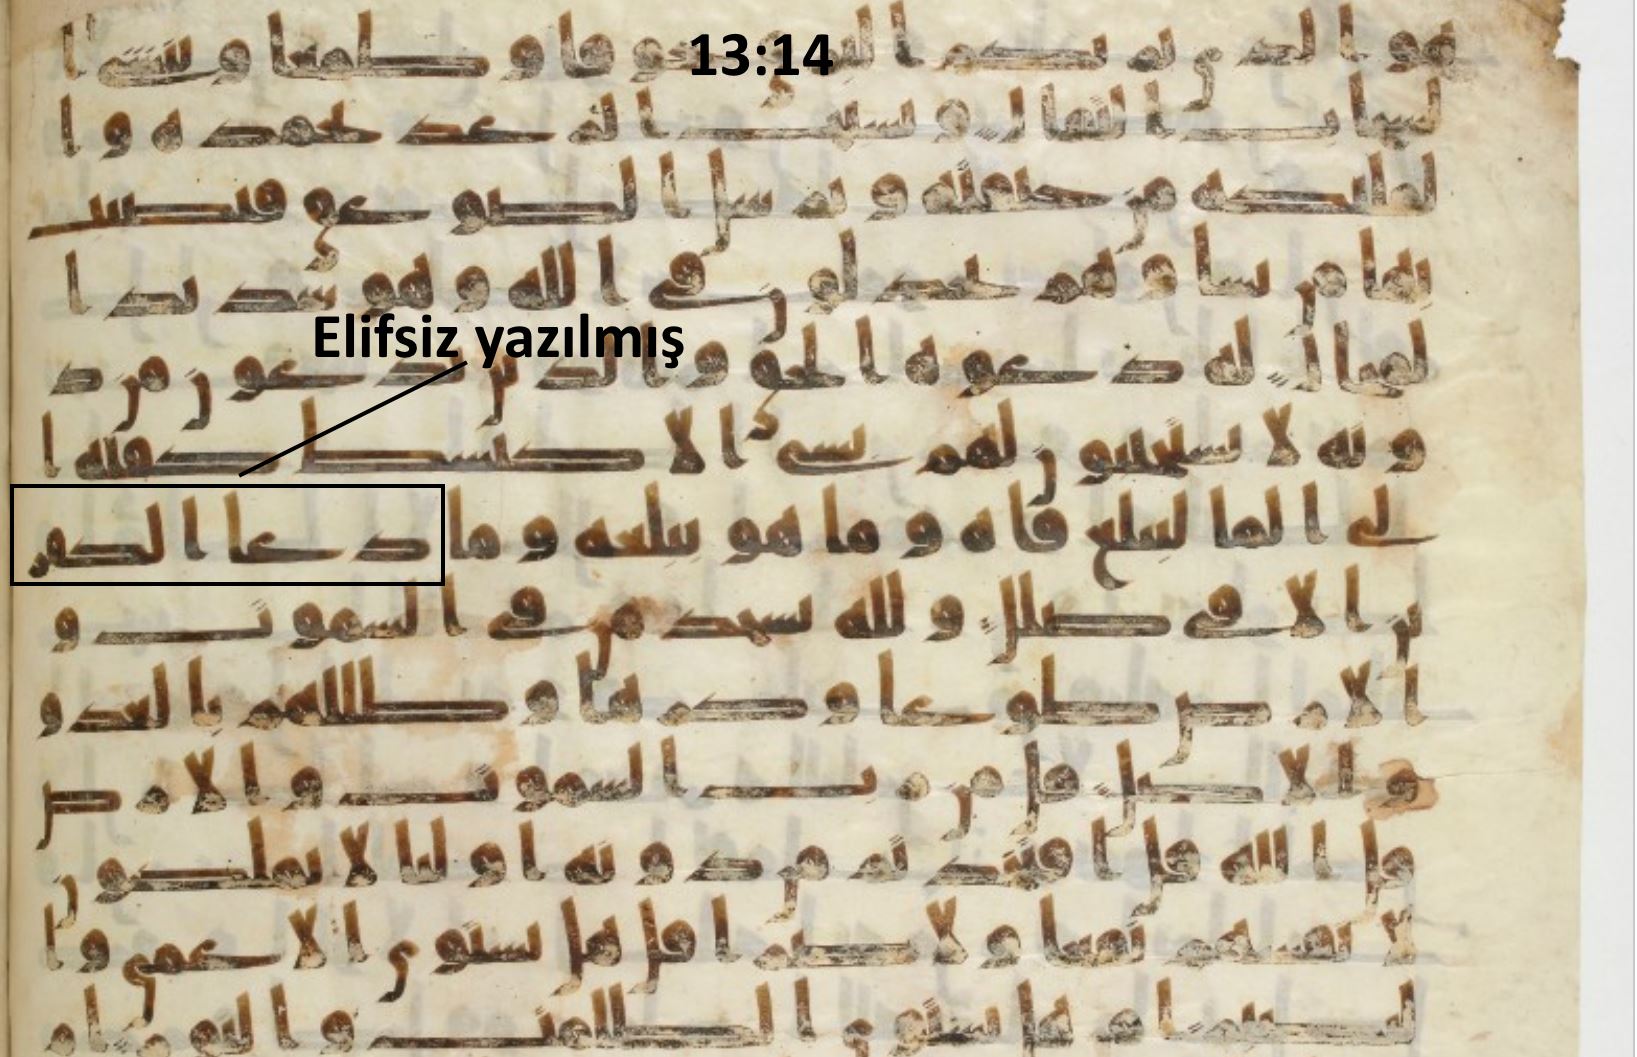 13:14
هو الذي يريكم البرق خوفا وطمعا وينشئ ا
لسحاب الثقال ويسبح الرعد بحمده وا
لملئكة من خيفته ويرسل الصوعق فيصيب
بها من يشا وهم يجدلون في الله وهو شديد ا
Elifsiz yazılmış
لمحال له دعوة الحق والذين يدعون من د
ونه لا يستجيبون لهم بشيء الا كبسط كفيه ا
لى الما ليبلغ فاه وما هو ببلغه وما دعا الكفر
ين الا في ضلل ولله يسجد من في السموت و
الارض طوعا وكرها وظللهم بالغدو
والاصل قل من رب السموت والارض
قل الله قل افتخذتم من دونه اوليا لا يملكون
لانفسهم نفعا ولا ضرا قل هل يستوي الاعمى وا
لبصير ام هل تستوي الظلمت والنور ام